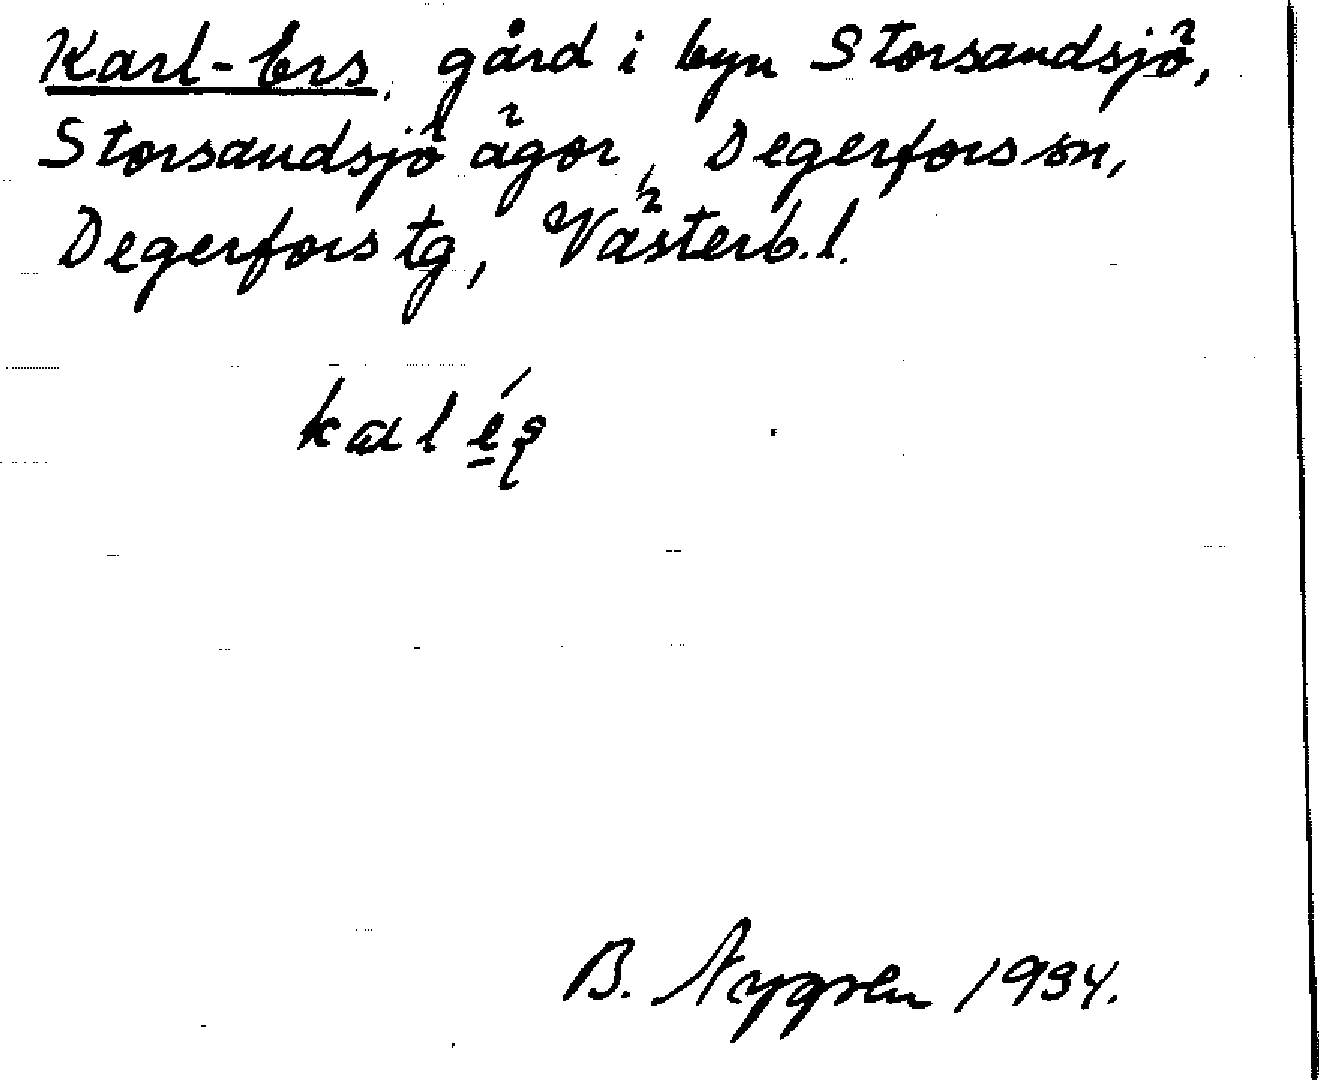 Karl-Ers, gård i byn Storsandsjö,
Storsandsjö ägor, Degerfors sn,
Degerfors tg, Västerb. l.
B. Nygren 1934.